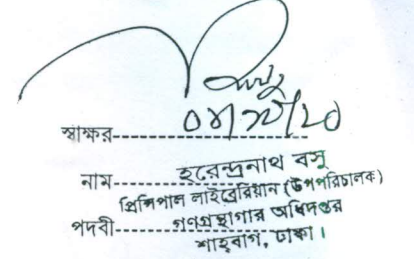 স্বাক্ষর
নাম হরেন্দ্রনাথ বসু
প্রিন্সিপাল লাইব্রেরিয়ান (উপপরিচালক)
পদবী গণগ্রন্থাগার অধিদপ্তর
শাহ্‌বাগ, ঢাকা।